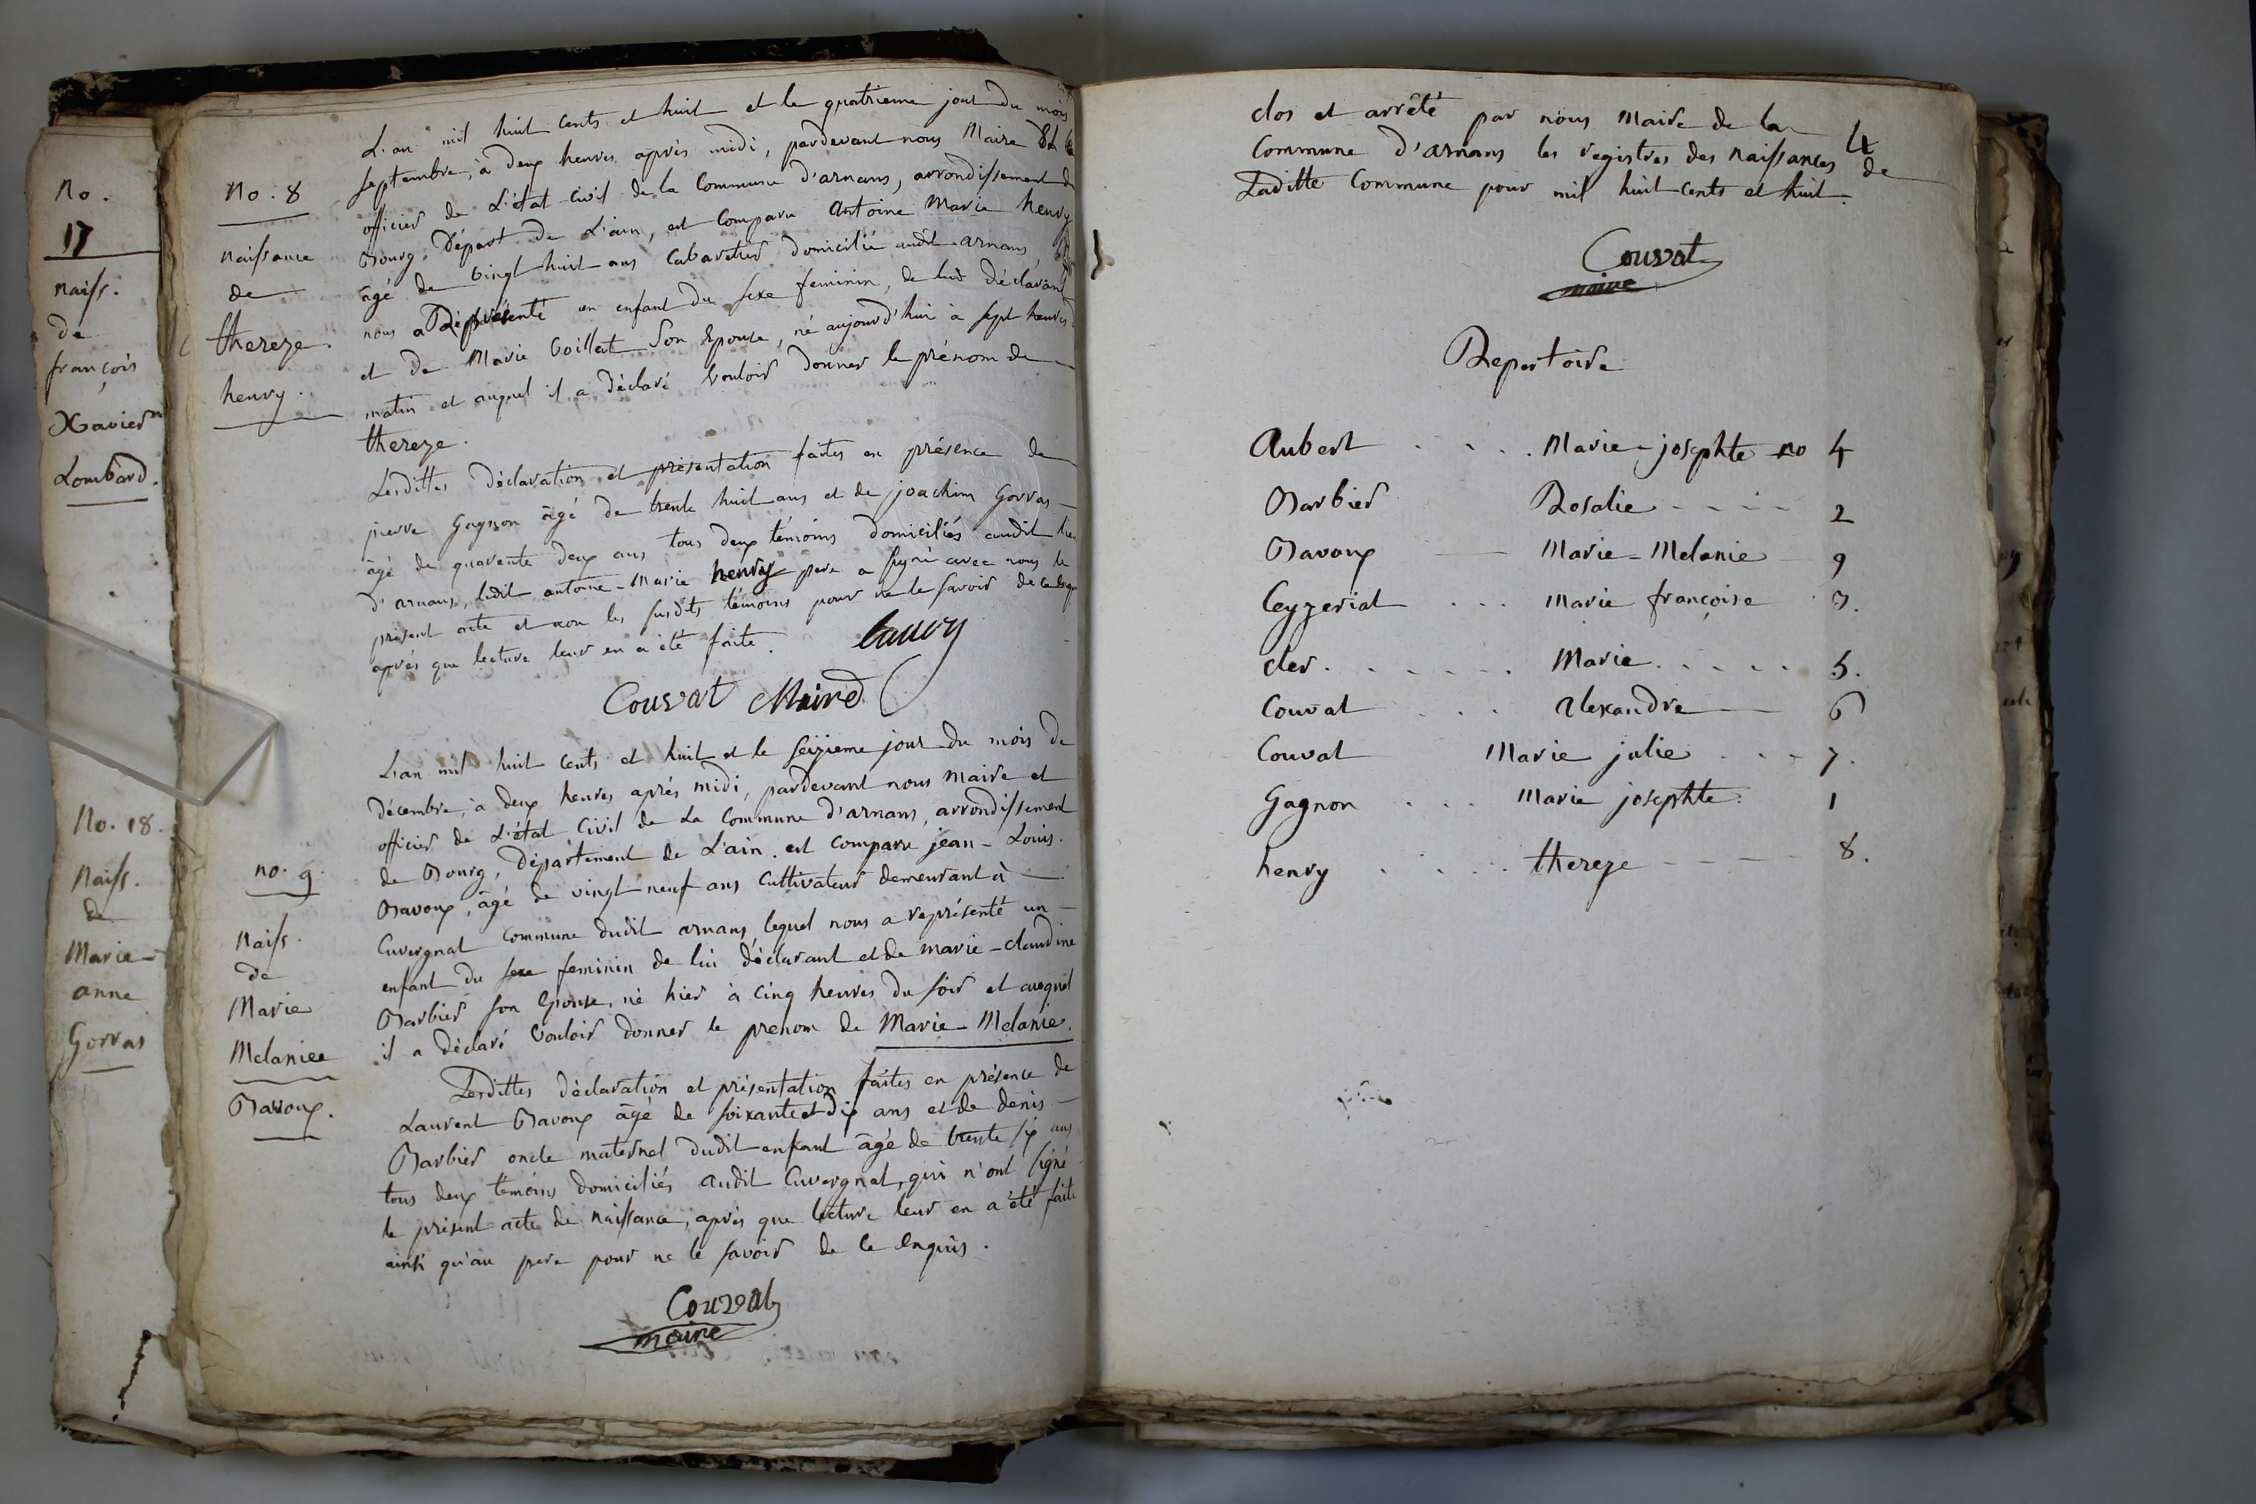 No.
17
naiss.
de
françois
Xavier
Lombard.
No. 18.
Naiss.
de
Marie-
anne
Gorras
No. 8
naissance
de
thereze.
henry.
L'an mil huit cents et huit et le quatrieme jour du mois
septembre, à deux heures après midi, pardevant nous Maire Et
officier de L'état Civil de la Commune d'arnans, arrondissement de
Bourg, Départ de L'ain, est Comparu Antoine Marie henry
âgé de vingt huit ans Cabaretier domicilié audit arnans
nous a Représenté un enfant du sexe feminin, de lui déclarant
et de Marie Voillat Son Epouse, né aujourd'hui à sept heures
matin et auquel il a déclaré Vouloir donner le prénom de
thereze.
Lesdittes déclaration et présentation faites en présence de
pierre Gagnon âgé de trente huit ans et de joachim Gorras
âgé de quarente deux ans tous deux témoins domiciliés audit lieu
d'arnans, ledit antoine-Marie henry pere a signé avec nous le
présent acte et non les susdits témoins pour ne le savoir de ce
après que lecture leur en a été faite.
Couvat Maire
no. 9.
Naiss.
de
Marie
Melaniee
Bavoux.
L'an mil huit cents et huit et le seizieme jour du mois de
décembre, à deux heures après midi, pardevant nous Maire et
officier de L'état Civil de La Commune d'arnans, arrondissement
de Bourg, Département de L'ain. est comparu jean-Louis.
Bavoux, âgé de vingt neuf ans Cultivateur demeurant à
Cuvergnat Commune dudit arnans, lequel nous a représenté un
enfant du sexe feminin de lui déclarant et de marie-claudine
Barbier son Epouse, né hier à cinq heures du soir et auquel
il a déclaré Vouloir donner le prenom de Marie-Melanie.
Lesdittes déclaration et présentation faites en présence de
Laurent Bavoux âgé de soixante et dix ans et de denis
Barbier oncle maternel dudit enfant âgé de trente six ans
tous deux témoins domiciliés audit Cuvergnat, qui n'ont signé
le présent acte de naissance, après que lecture leur en a été faite
ainsi qu'au pere pour ne le savoir de ce Enquis.
Couvat
maire
clos et arrêté par nous Maire de la
Commune d'arnans les registres des naissances de
Laditte Commune pour mil huit cents et huit.
Couvat
maire
Repertoire
Aubert . . . . Marie-josephte no 4
Barbier Rosalie - - - - 2
Bavoux Marie-Melanie 9
Ceyzeriat . . . Marie françoise 3.
cler. . . . . . . Marie. . . . . 5.
Couvat . . . alexandre 6
Couvat Marie julie . . . 7.
Gagnon . . . Marie josephte. 1
henry . . . . thereze - - - - 8.